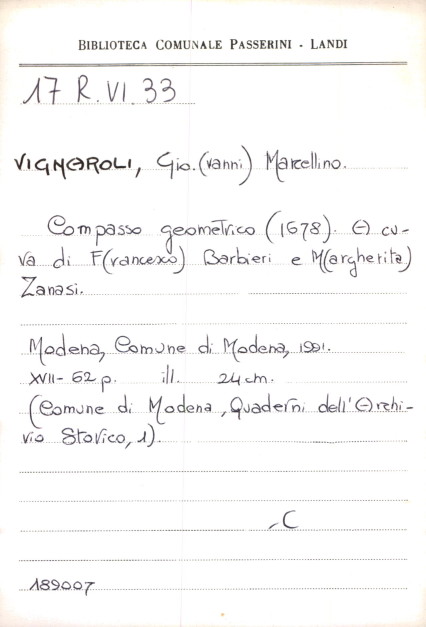 BIBLIOTECA COMUNALE PASSERINI - LANDI
17 R.VI.33
VIGNAROLI, Gio.(vanni) Marcellino.
Compasso geometrico (1678). A cu-
ra di F(rancesco) Barbieri e M(argherita)
Zanasi.
Modena, Comune di Modena, 1991.
XVII-62 p. ill. 24 cm.
(Comune di Modena, Quaderni dell'Archi-
vio Storico, 1).
C
189007